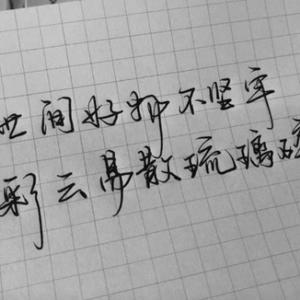 世间好物不坚牢
彩云易散琉璃碎